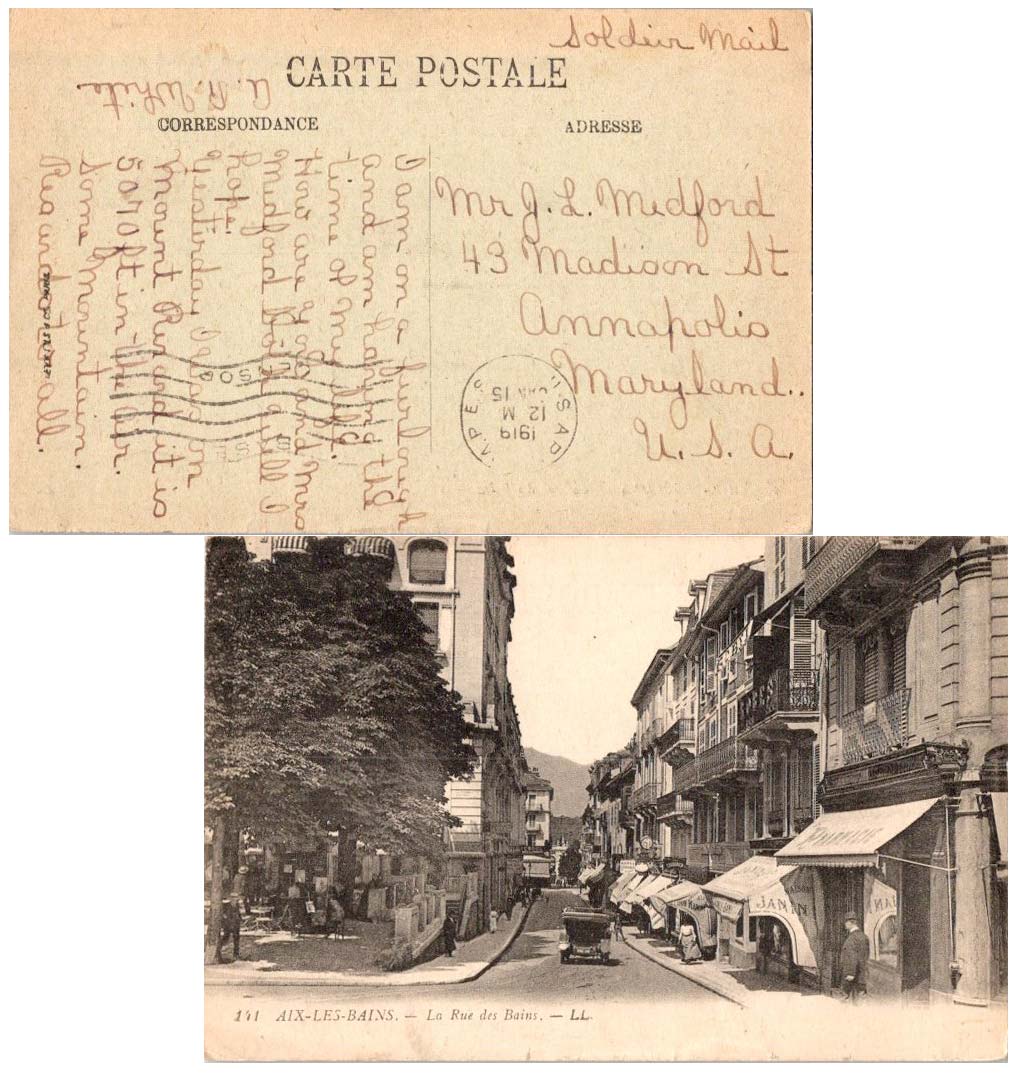 Soldier Mail
CARTE POSTALE
A. R. White
CORRESPONDANCE
ADRESSE
I am on a furlough
and am having the
time of my life.
How are you and Mrs
Medford. Both well I
hope.
Yesterday I was on
Mount Revard it is
5070 ft in the air.
Some Mountain.
Regards to all.
Mr J. L. Medford
43 Madison St
Annapolis
Maryland.
U. S. A.
M.P.E.S.
U.S.A.P.O.
JAN 15
12 M
1919
PHARMACIE
MAISON
JANIN
JAN
141 AIX-LES-BAINS. — La Rue des Bains. — LL.